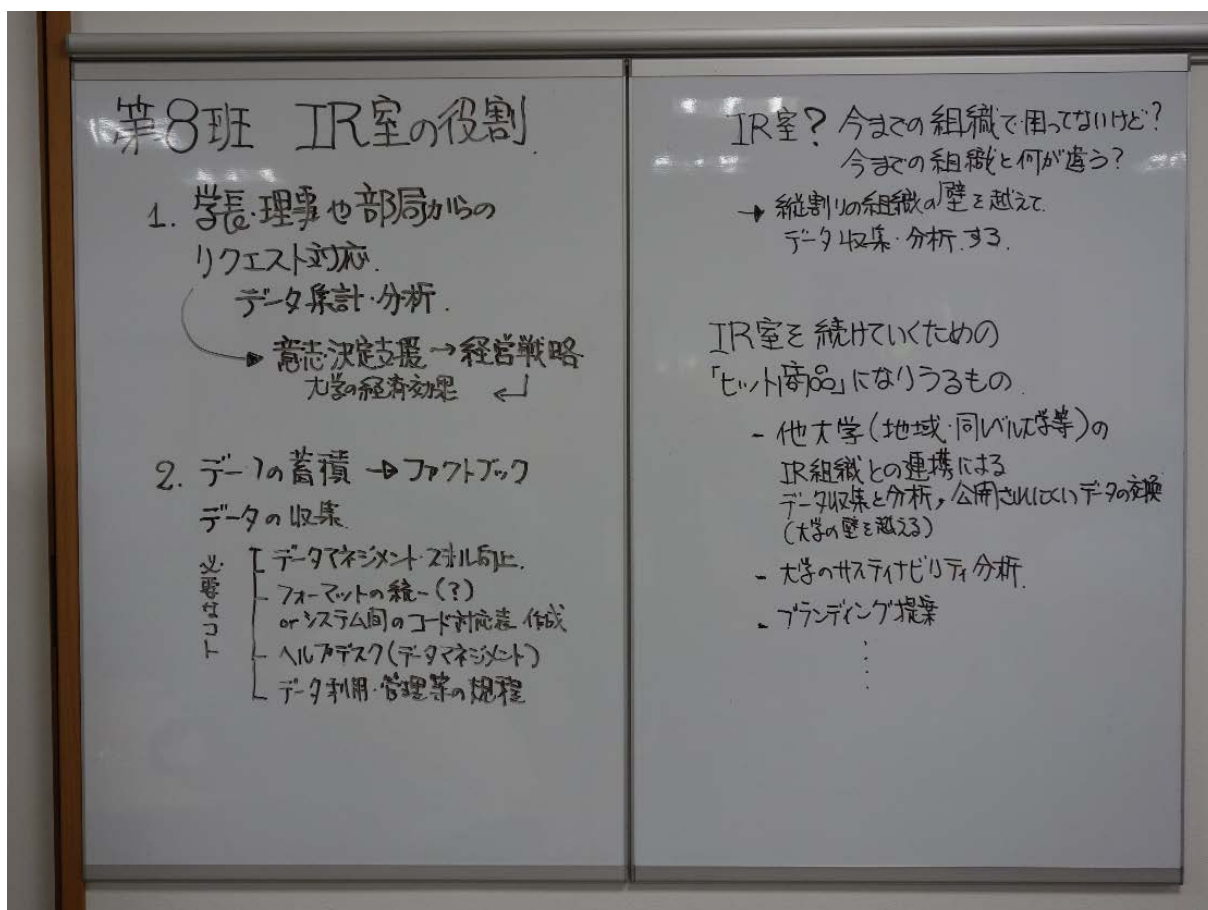 第8班 IR室の役割.
1. 学長・理事や部局からの
リクエスト対応.
データ集計・分析.
→ 意志・決定支援→経営戦略
大学の経済効果 ↵
2. データの蓄積 → ファクトブック
データの収集.
必要なコト
データマネジメント・スキル向上.
フォーマットの統一(?)
or システム間のコード対応表 作成
ヘルプデスク(データマネジメント)
データ利用・管理等の規程
IR室? 今までの組織で困ってないけど?
今までの組織と何が違う?
→ 縦割りの組織の壁を越えて.
データ収集・分析.する.
IR室を続けていくための
「ヒット商品」になりうるもの.
- 他大学(地域・同レベル大学等)の
IR組織との連携による
データ収集と分析, 公開されにくいデータの交換
(大学の壁を越える)
- 大学のサスティナビリティ分析.
- ブランディング提案
⋮